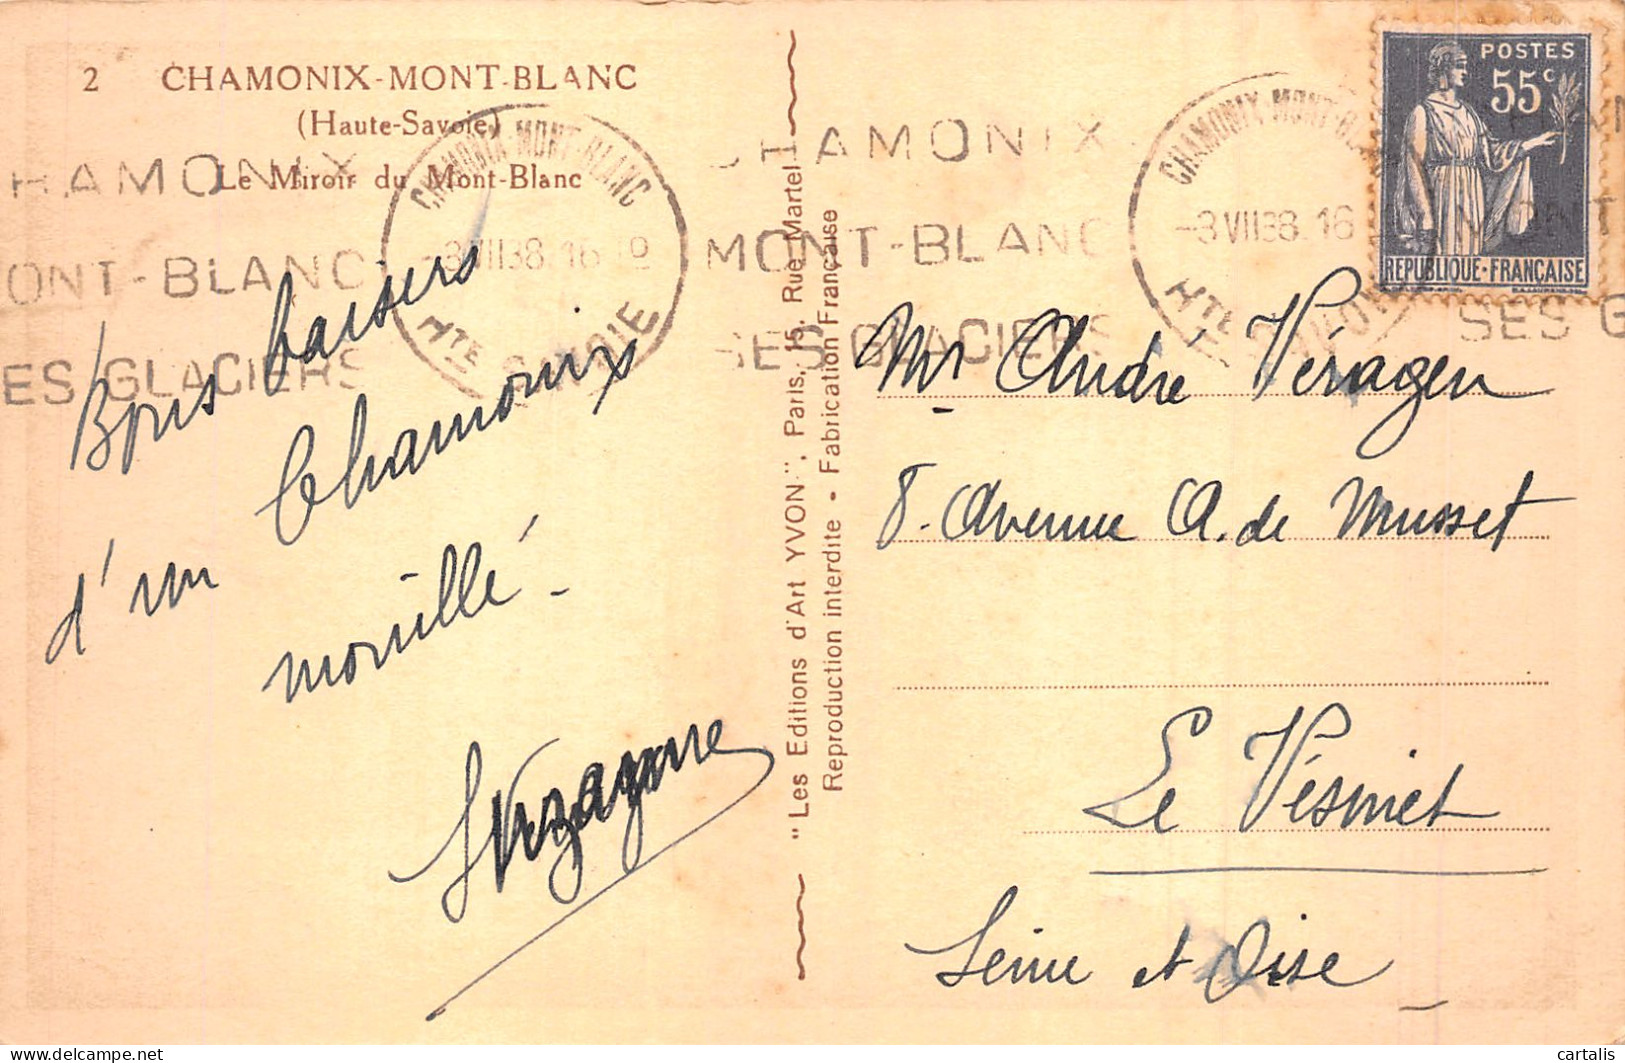 2 CHAMONIX-MONT-BLANC
(Haute-Savoie)
Le Miroir du Mont-Blanc
HAMONIX
ONT-BLANC
ES GLACIERS
CHAMONIX MONT-BLANC
-8 VII 38. 16
HTE SAVOIE
CHAMONIX
MONT-BLANC
SES GLACIERS
CHAMONIX-MONT-BLANC
-8 VII 38. 16
HTE SAVOIE
POSTES
55c
REPUBLIQUE·FRANÇAISE
ONT
SES G
Bons baisers
d'un Chamonix
mouillé -
Suzanne
"Les Editions d'Art YVON", Paris, 15, Rue Martel
Reproduction interdite - Fabrication Française
Mr André Véragen
8. Avenue A. de Musset
Le Vésinet
Seine et Oise
cartalis
delcampe.net